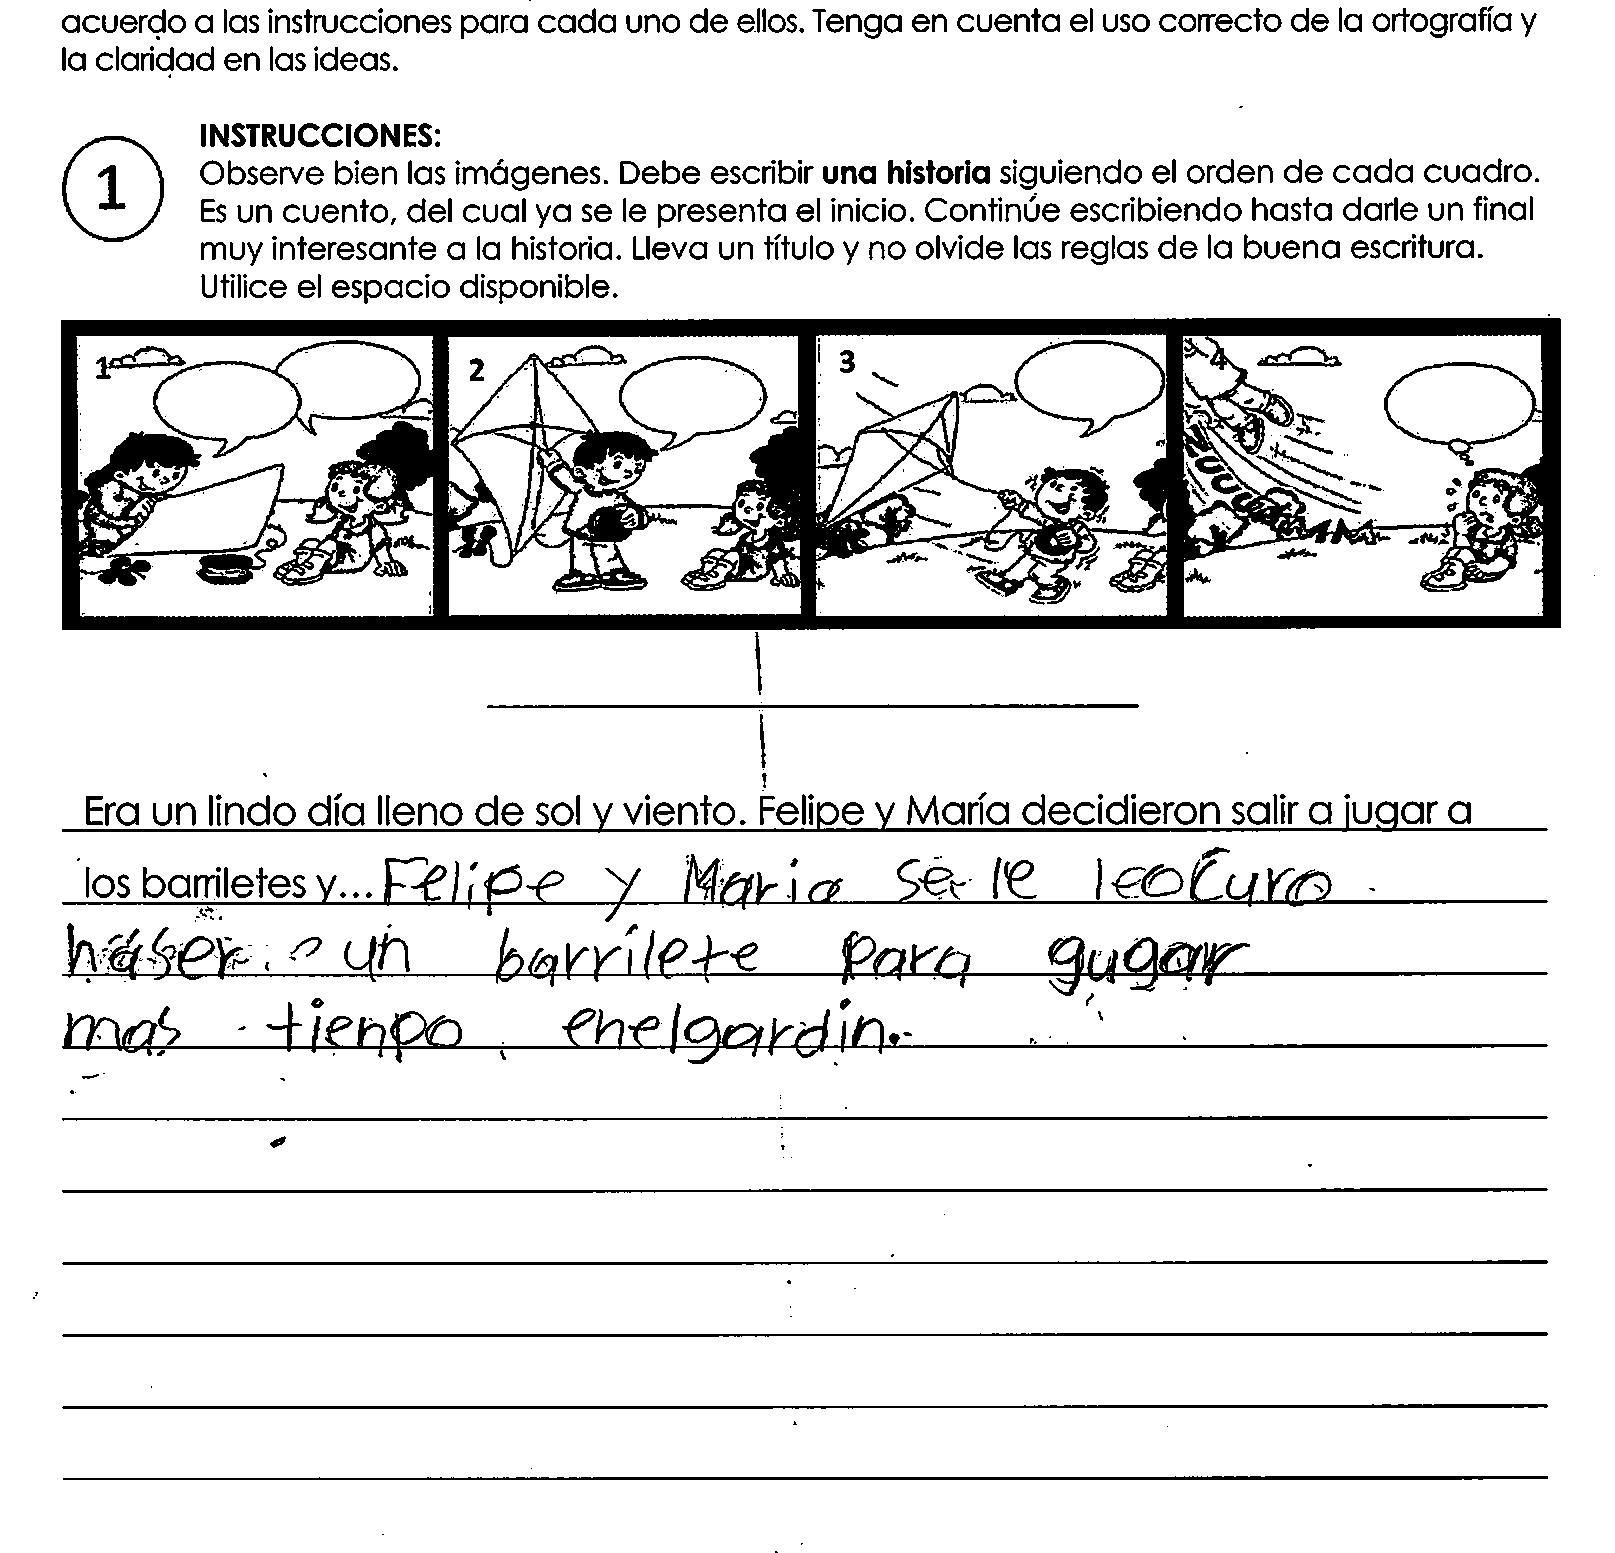 acuerdo a las instrucciones para cada uno de ellos. Tenga en cuenta el uso correcto de la ortografía y
la claridad en las ideas.
1
INSTRUCCIONES:
Observe bien las imágenes. Debe escribir una historia siguiendo el orden de cada cuadro.
Es un cuento, del cual ya se le presenta el inicio. Continúe escribiendo hasta darle un final
muy interesante a la historia. Lleva un título y no olvide las reglas de la buena escritura.
Utilice el espacio disponible.
1 2 3 4
Era un lindo día lleno de sol y viento. Felipe y María decidieron salir a jugar a
los barriletes y... Felipe y Maria se le leocuro
haser un barrilete para gugar
mas tienpo enelgardin.